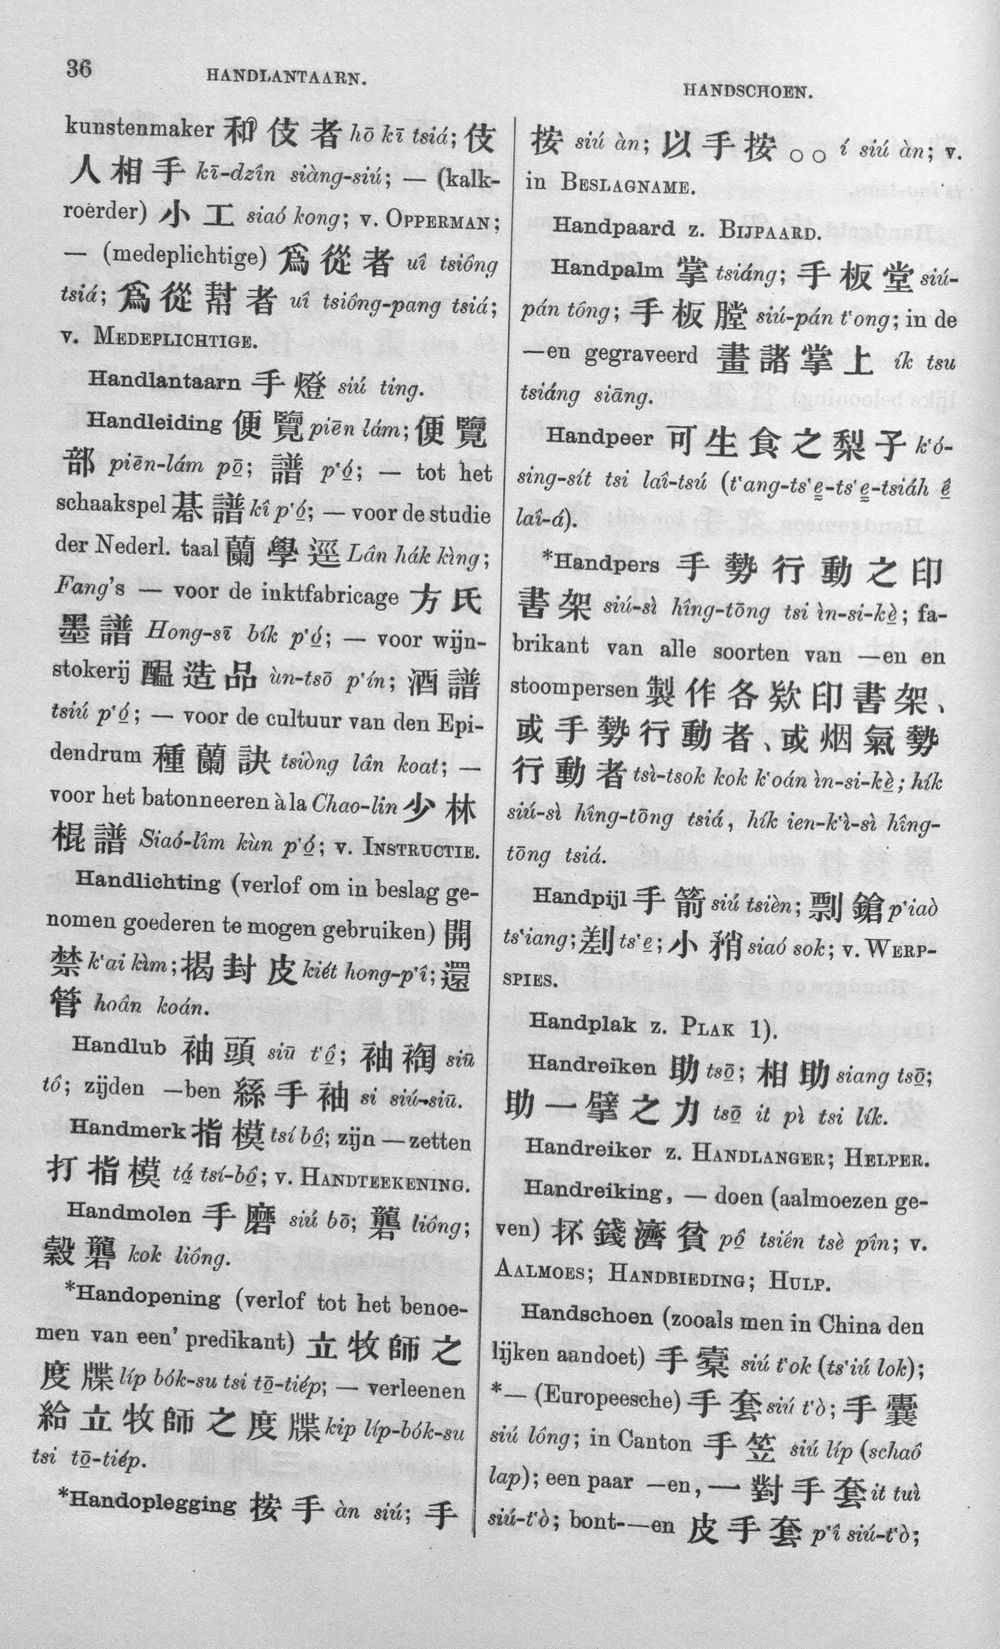 36
HANDLANTAARN.
HANDSCHOEN.
kunstenmaker 和伎者 hō kī tsiá; 伎
人相手 kī-dzîn siàng-siú; — (kalk-
roerder) 小工 siaó kong; v. OPPERMAN;
— (medeplichtige) 爲從者 uî tsiông
tsiá; 爲從幇者 uî tsiông-pang tsiá;
v. MEDEPLICHTIGE.
Handlantaarn 手燈 siú ting.
Handleiding 便覽 piēn lám; 便覽
部 piēn-lám pō̤; 譜 pʻó̤; — tot het
schaakspel 碁譜 kî pʻó̤; — voor de studie
der Nederl. taal 蘭學逕 Lân hák kìng;
Fang's — voor de inktfabricage 方氏
墨譜 Hong-sī bík pʻó̤; — voor wijn-
stokerij 醖造品 ùn-tsō pʻín; 酒譜
tsiú pʻó̤; — voor de cultuur van den Epi-
dendrum 種蘭訣 tsiòng lân koat; —
voor het batonneeren à la Chao-lin 少林
棍譜 Siaó-lîm kùn pʻó̤; v. INSTRUCTIE.
Handlichting (verlof om in beslag ge-
nomen goederen te mogen gebruiken) 開
禁 kʻai kìm; 揭封皮 kiét hong-pʻî; 還
管 hoân koán.
Handlub 袖頭 siū tʻô̤; 袖裪 siū
tô; zijden —ben 絲手袖 si siú-siū.
Handmerk 指模 tsí bô̤; zijn — zetten
打指模 tá̤ tsí-bô̤; v. HANDTEEKENING.
Handmolen 手磨 siú bō; 礱 liông;
穀礱 kok liông.
*Handopening (verlof tot het benoe-
men van een' predikant) 立牧師之
度牒 líp bók-su tsi tō̤-tiép; — verleenen
給立牧師之度牒 kip líp-bók-su
tsi tō̤-tiép.
*Handoplegging 按手 àn siú; 手
按 siú àn; 以手按○○ í siú àn; v.
in BESLAGNAME.
Handpaard z. BIJPAARD.
Handpalm 掌 tsiáng; 手板堂 siú-
pán tông; 手板膛 siú-pán tʻong; in de
—en gegraveerd 畫諸掌上 ík tsu
tsiáng siāng.
Handpeer 可生食之梨子 kʻó-
sing-sít tsi laî-tsú (tʻang-tsʻe̤-tsʻe̤-tsiáh ê̤
laî-á).
*Handpers 手勢行動之印
書架 siú-sì hîng-tōng tsi ìn-si-kè̤; fa-
brikant van alle soorten van —en en
stoompersen 製作各欵印書架、
或手勢行動者、或烟氣勢
行動者 tsì-tsok kok kʻoán ìn-si-kè̤; hík
siú-sì hîng-tōng tsiá, hík ien-kʻì-sì hîng-
tōng tsiá.
Handpijl 手箭 siú tsièn; 剽鎗 pʻiaò
tsʻiang; 剗 tsʻe̤; 小矟 siaó sok; v. WERP-
SPIES.
Handplak z. PLAK 1).
Handreiken 助 tsō̤; 相助 siang tsō̤;
助一擘之力 tsō̤ it pì tsi lík.
Handreiker z. HANDLANGER; HELPER.
Handreiking, — doen (aalmoezen ge-
ven) 抔錢濟貧 pô̤ tsién tsè pîn; v.
AALMOES; HANDBIEDING; HULP.
Handschoen (zooals men in China den
lijken aandoet) 手橐 siú tʻok (tsʻiú lok);
*— (Europeesche) 手套 siú tʻò; 手囊
siú lông; in Canton 手笠 siú líp (schaô
lap); een paar —en, 一對手套 it tuì
siú-tʻò; bont-—en 皮手套 pʻî siú-tʻò;